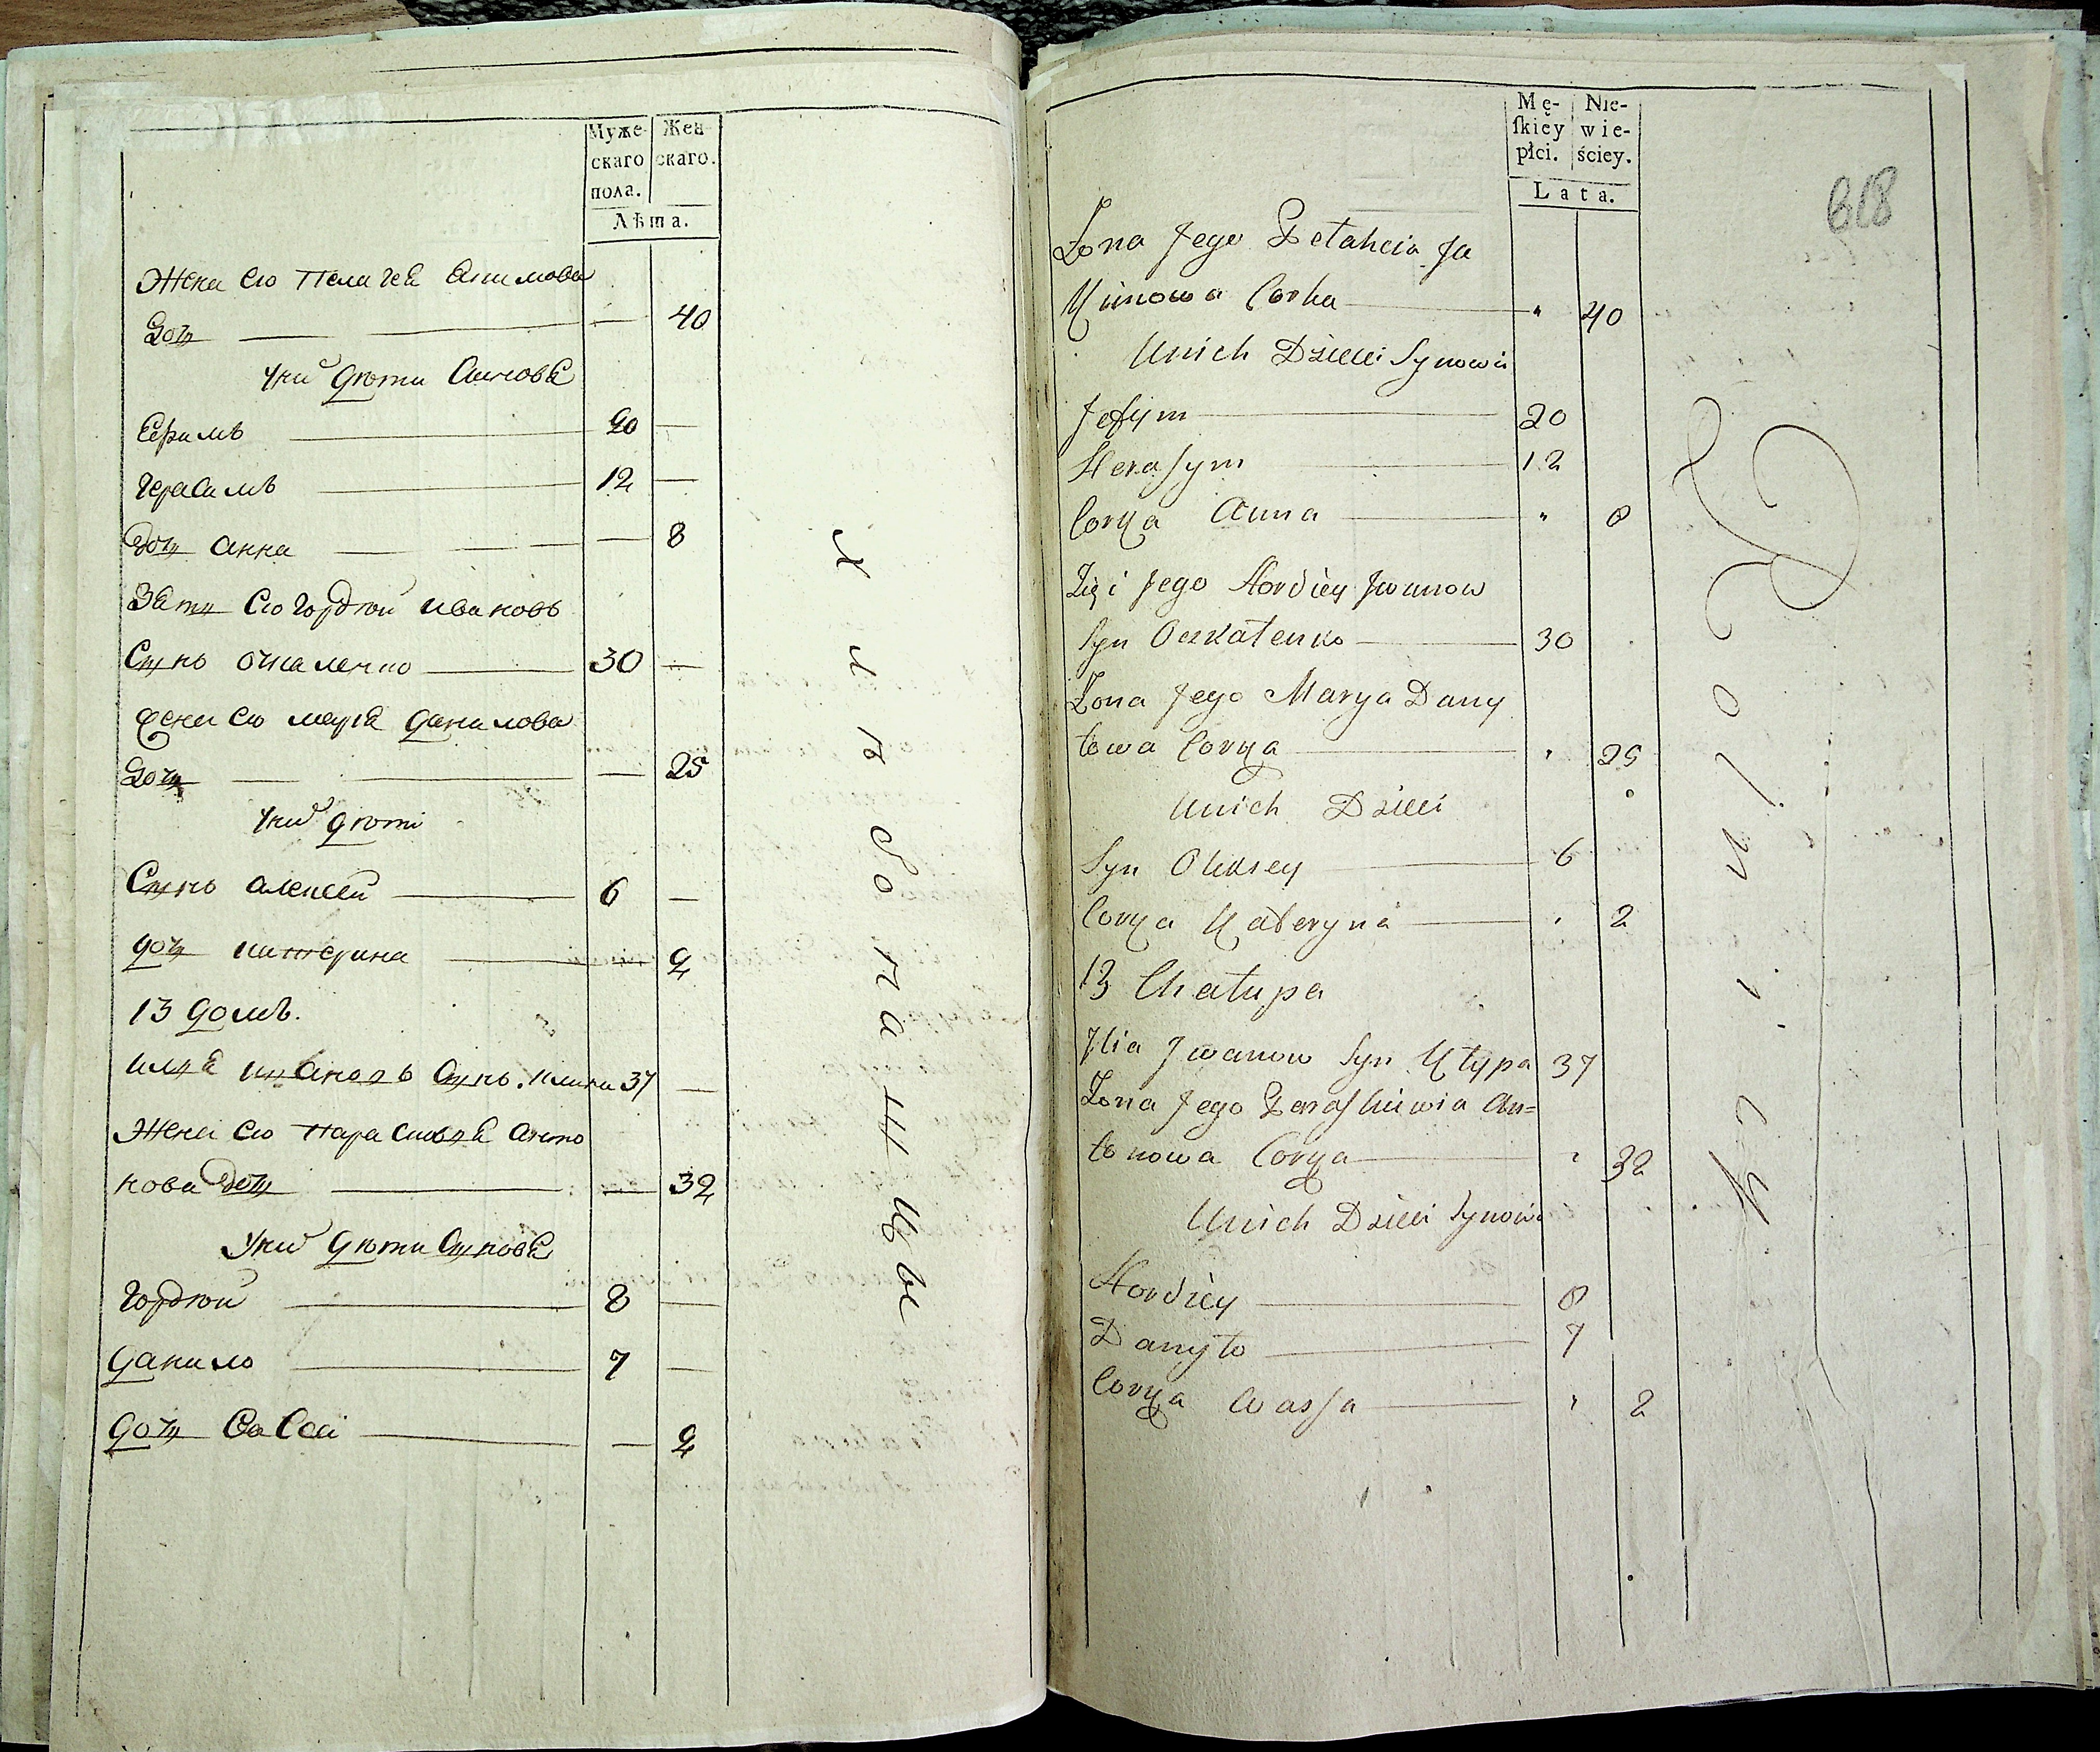 Муже-
скаго
пола.
Жен-
скаго.
Лѣта.
Жена его Пелагея Екимова
дочь — — 40
У них дѣти Сыновя
Ефимъ — 20 —
Герасимъ — 12 —
дочь Анна — — 8
Зять его Гордѣй Ивановъ
Сынъ — 30 —
Жена его Марія Данилова
дочь — — 25
У них дѣти
Сынъ Алексѣй — 6 —
дочь Катерина — — 2
13 домъ.
Илля Ивановъ Сынъ 37 —
Жена его Парасковія Анто
нова дочь — — 32
У них дѣти Сыновя
Гордѣй — 8 —
Данило — 7 —
дочь Васса — — 2
Хлѣбопашцы
Mę-
ſkiey
płci.
Nie-
wie-
ściey.
Lata.
818
Żona Jego Pelaheia Ja
Kimowa Corka — " 40
U nich Dzieci Synowie
Jefym — 20
Herasym — 12
Corka Anna — " 8
Zięć Jego Hordiey Iwanow
Syn — 30
Żona Jego Marya Dany
łowa Corka — " 25
U nich Dzieci
Syn Olexsey — 6
Corka Kateryna — " 2
13 Chałupa
Ilia Iwanow Syn Kłypa 37
Żona Jego Paraskiewia An=
tonowa Corka — " 32
U nich Dzieci Synowie
Hordiey — 8
Danyło — 7
Corka Wassa — " 2